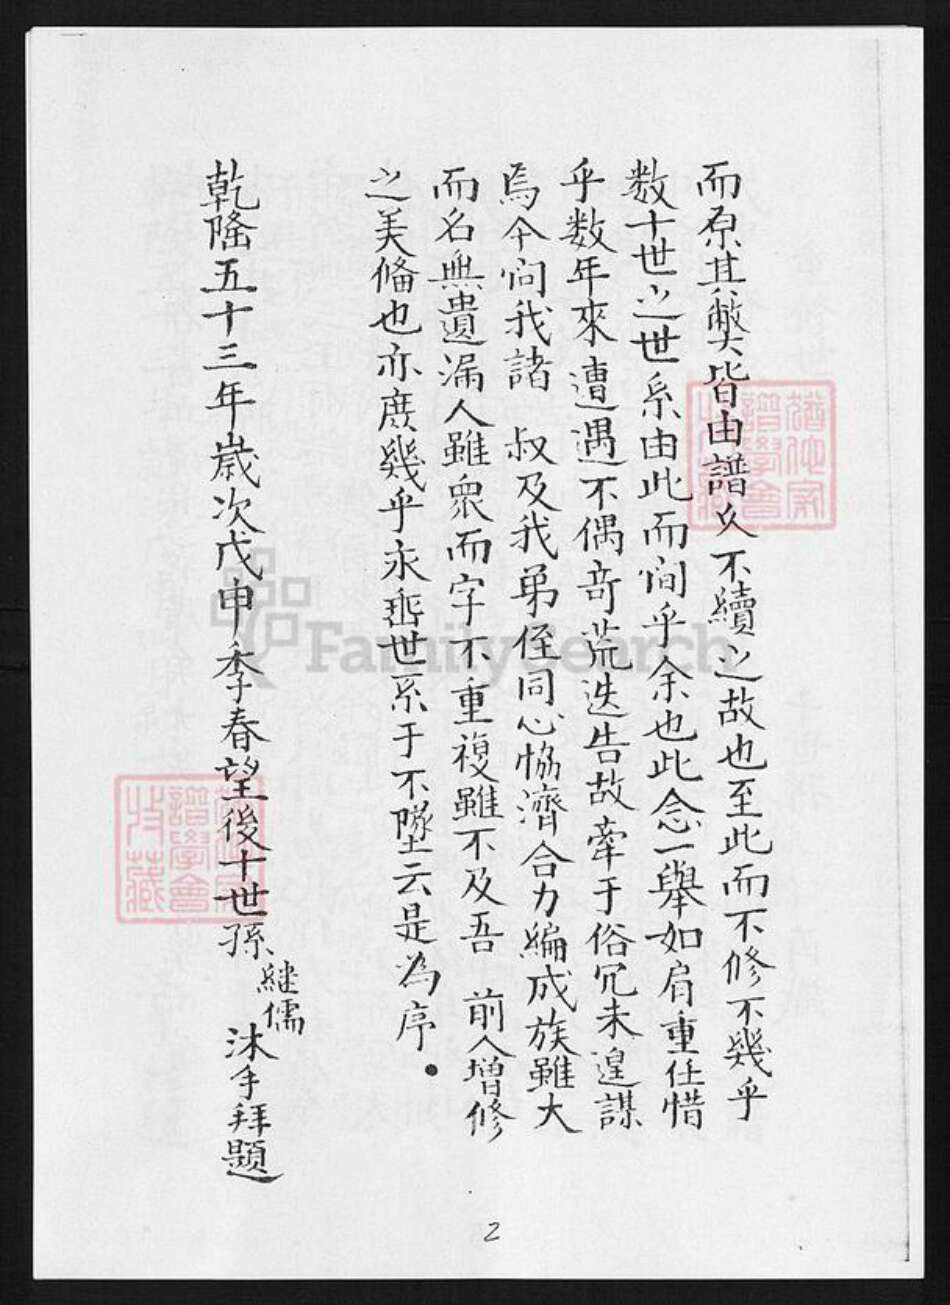 而原其弊皆由譜久不續之故也至此而不修不幾乎
数十世之世系由此而间乎余也此念一舉如肩重任惜
乎数年來遭遇不偶奇荒迭告故牽于俗冗未遑謀
焉今问我諸 叔及我弟侄同心恊濟合力編成族雖大
而名無遺漏人雖眾而字不重複雖不及吾 前人增修
之美俻也亦庶幾乎永垂世系于不墜云是為序.
乾隆五十三年歲次戊申季春望後十世孫 継儒 沐手拜題
譜學會
收藏
譜學會
收藏
FamilySearch
2